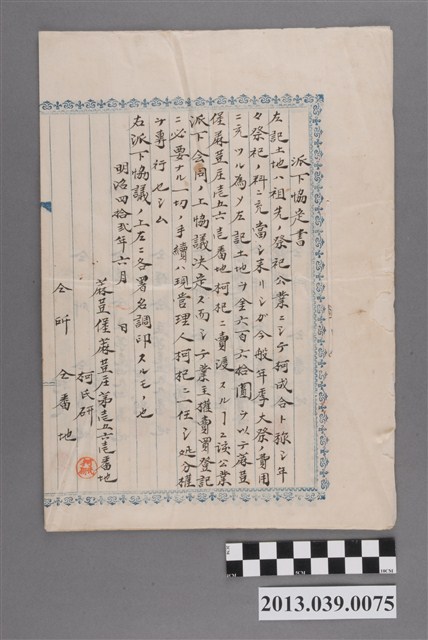 派下協定書
左記土地ハ祖先ノ祭祀公業ニシテ柯成合ト稱シ年
々祭祀ノ料ニ充當シ来リシガ今般年季大祭ノ費用
ニ充ツル為メ左記土地ヲ金六百六拾圓ヲ以テ蔴荳
堡蔴荳庄壱五六壱番地柯杞ニ賣渡スルコトニ該公業
派下会同ノ上協議决定ス而シテ業主權賣買登記
ニ必要ナル一切ノ手續ハ現管理人柯杞ニ一任シ処分権
ヲ專行セシム
右派下協議ノ上左ニ各署名調印スルモノ也
明治四拾貳年六月 日
蔴荳堡蔴荳庄第壱五六壱番地
柯氏研
仝所 仝番地
CM
5CM
10CM
2013.039.0075